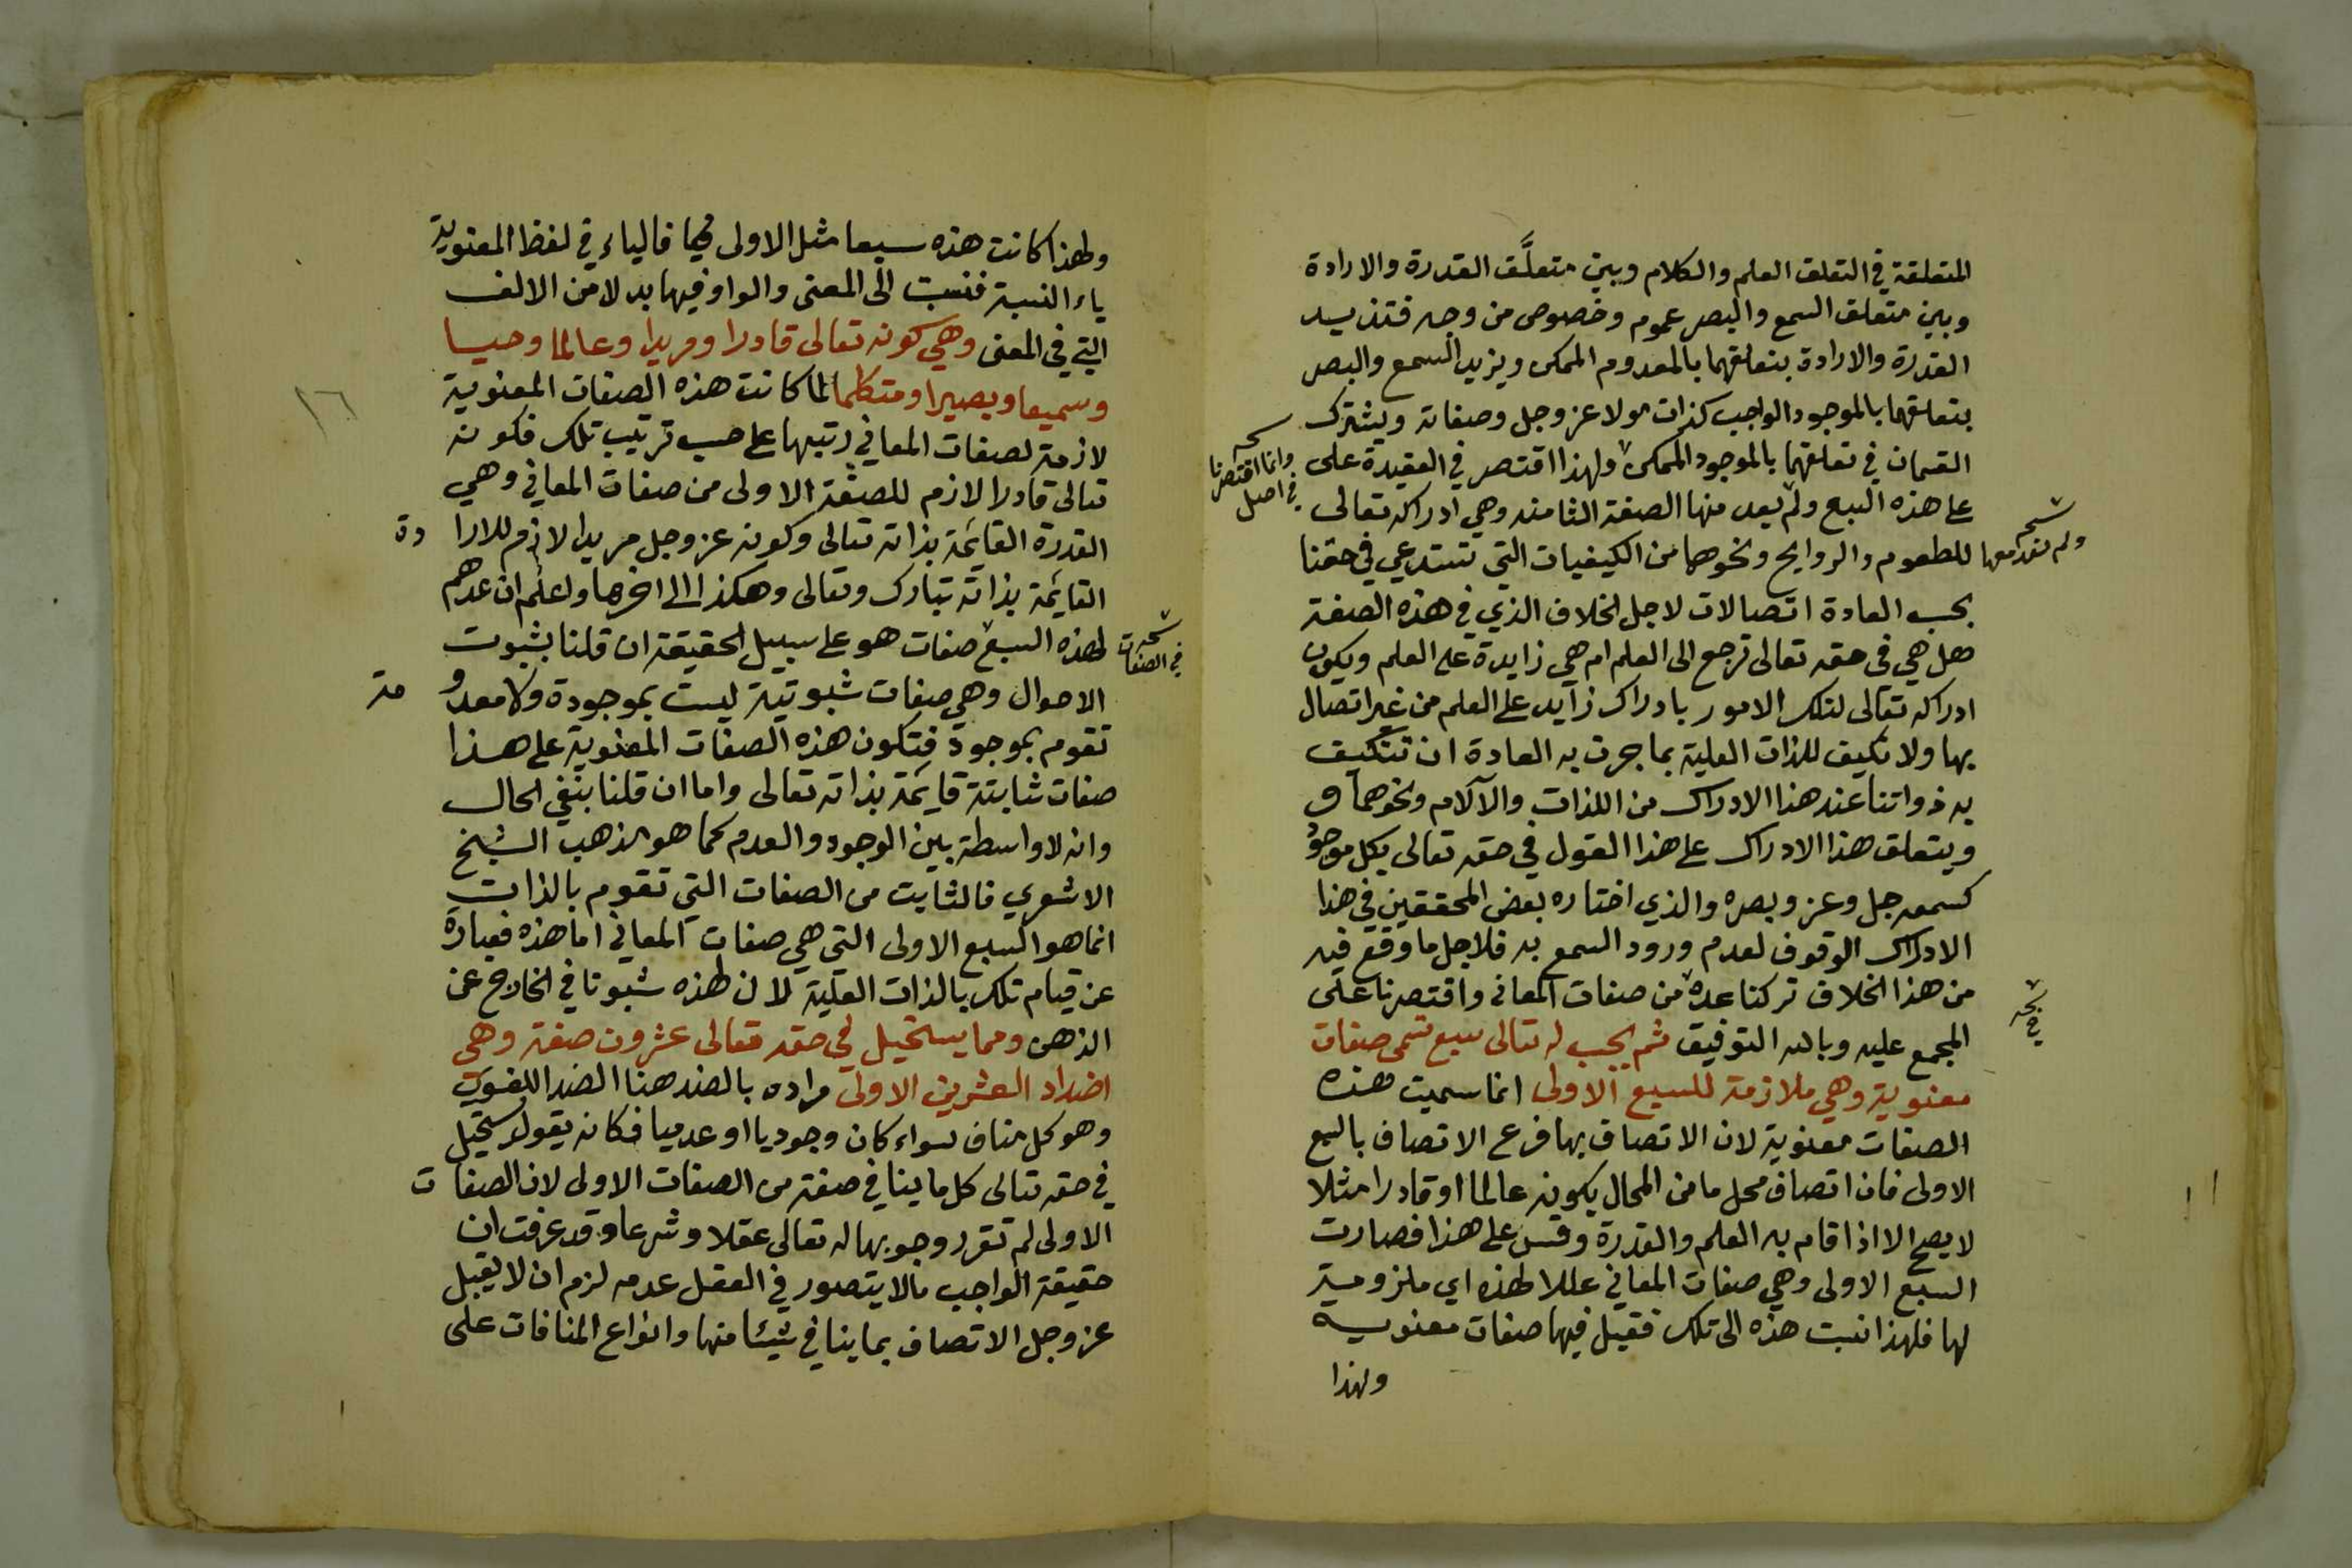 المتعلقة في التعلق العلم والكلام وبين متعلَّق القدرة والارادة
وبين متعلق السمع والبصر عموم وخصوص من وجه فتزيد
القدرة والارادة بتعلقهما بالمعدوم الممكن ويزيد السمع والبصر
بتعلقهما بالموجود الواجب كذات مولا عز وجل وصفاته ويشترك
القسمان في تعلقهما بالموجود الممكن ولهذا اقتصر في العقيدة على
نسخه وانما اقتصرنا في اصل
على هذه السبع ولم يعد منها الصفة الثامنه وهي ادراكه تعالى
نسخه ولم نعد معها
للطعوم والروايح ونحوهما من الكيفيات التي تستدعي في حقنا
بحسب العادة اتصالات لاجل الخلاف الذي في هذه الصفة
هل هي في حقه تعالى ترجع الى العلم ام هي زايدة على العلم ويكون
ادراكه تعالى لتلك الامور بادراك زايد على العلم من غير اتصال
بها ولا تكيف للذات العلية بما جرت به العادة ان تتكيف
به ذواتنا عند هذا الادراك من اللذات والآلام ونحوهما و
ويتعلق هذا الادراك على هذا القول في حقه تعالى بكل موجود
كسمعه جل وعز وبصره والذي اختاره بعض المحققين في هذا
الادراك الوقوف لعدم ورود السمع به فلاجل ما وقع فيه
من هذا الخلاف تركنا عده من صفات المعاني واقتصرنا على
نسخه في
المجمع عليه وبالله التوفيق ثم يجب له تعالى سبع تسمى صفات
معنوية وهي ملازمة للسبع الاولى انما سميت هذه
الصفات معنوية لان الاتصاف بها فرع الاتصاف بالسبع
الاولى فان اتصاف محل ما من المحال بكونه عالما او قادرا مثلا
لا يصح الا اذا قام به العلم والقدرة وقس على هذا فصارت
السبع الاولى وهي صفات المعاني عللا لهذه اي ملزومية
لها فلهذا نسبت هذه الى تلك فقيل فيها صفات معنوية
ولهذا
ولهذا كانت هذه سبعا مثل الاولى فالياء في لفظ المعنوية
ياء النسبة فنسبت الى المعنى والواو فيها بدلا من الالف
التي في المعنى وهي كونه تعالى قادرا ومريدا وعالما وحيا
وسميعا وبصيرا ومتكلما لما كانت هذه الصفات المعنوية
١٦
لازمة لصفات المعاني رتبها على حسب ترتيب تلك فكونه
تعالى قادرا لازم للصفة الاولى من صفات المعاني وهي
القدرة القايمة بذاته تعالى وكونه عز وجل مريدا لازم للارا دة
القايمة بذاته تبارك وتعالى وهكذا الى اخرها واعلم ان عدهم
لهذه السبع صفات هو على سبيل الحقيقة ان قلنا بثبوت
نسخه في الصفات
الاحوال وهي صفات ثبوتية ليست بموجودة ولا معدو مة
تقوم بموجود فتكون هذه الصفات المعنوية على هذا
صفات ثابتة قايمة بذاته تعالى واما ان قلنا بنفي الحال
وانه لا واسطة بين الوجود والعدم كما هو مذهب الشيخ
الاشعري فالثابت من الصفات التي تقوم بالذات
انما هو السبع الاولى التي هي صفات المعاني اما هذه فعبارة
عن قيام تلك بالذات العلية لا ان لهذه ثبوتا في الخارج عن
الذهن ومما يستحيل في حقه تعالى عشرون صفة وهي
اضداد العشرين الاولى مراده بالضد هنا الضد اللغوي
وهو كل مناف سواء كان وجوديا او عدميا فكانه يقول يستحيل
في حقه تعالى كل ما ينافي صفة من الصفات الاولى لان الصفا ت
الاولى لم تقرر وجوبها له تعالى عقلا وشرعا وقد عرفت ان
حقيقة الواجب مالا يتصور في العقل عدمه لزم ان لا يقبل
عز وجل الاتصاف بما ينافي شيئا منها وانواع المنافات على